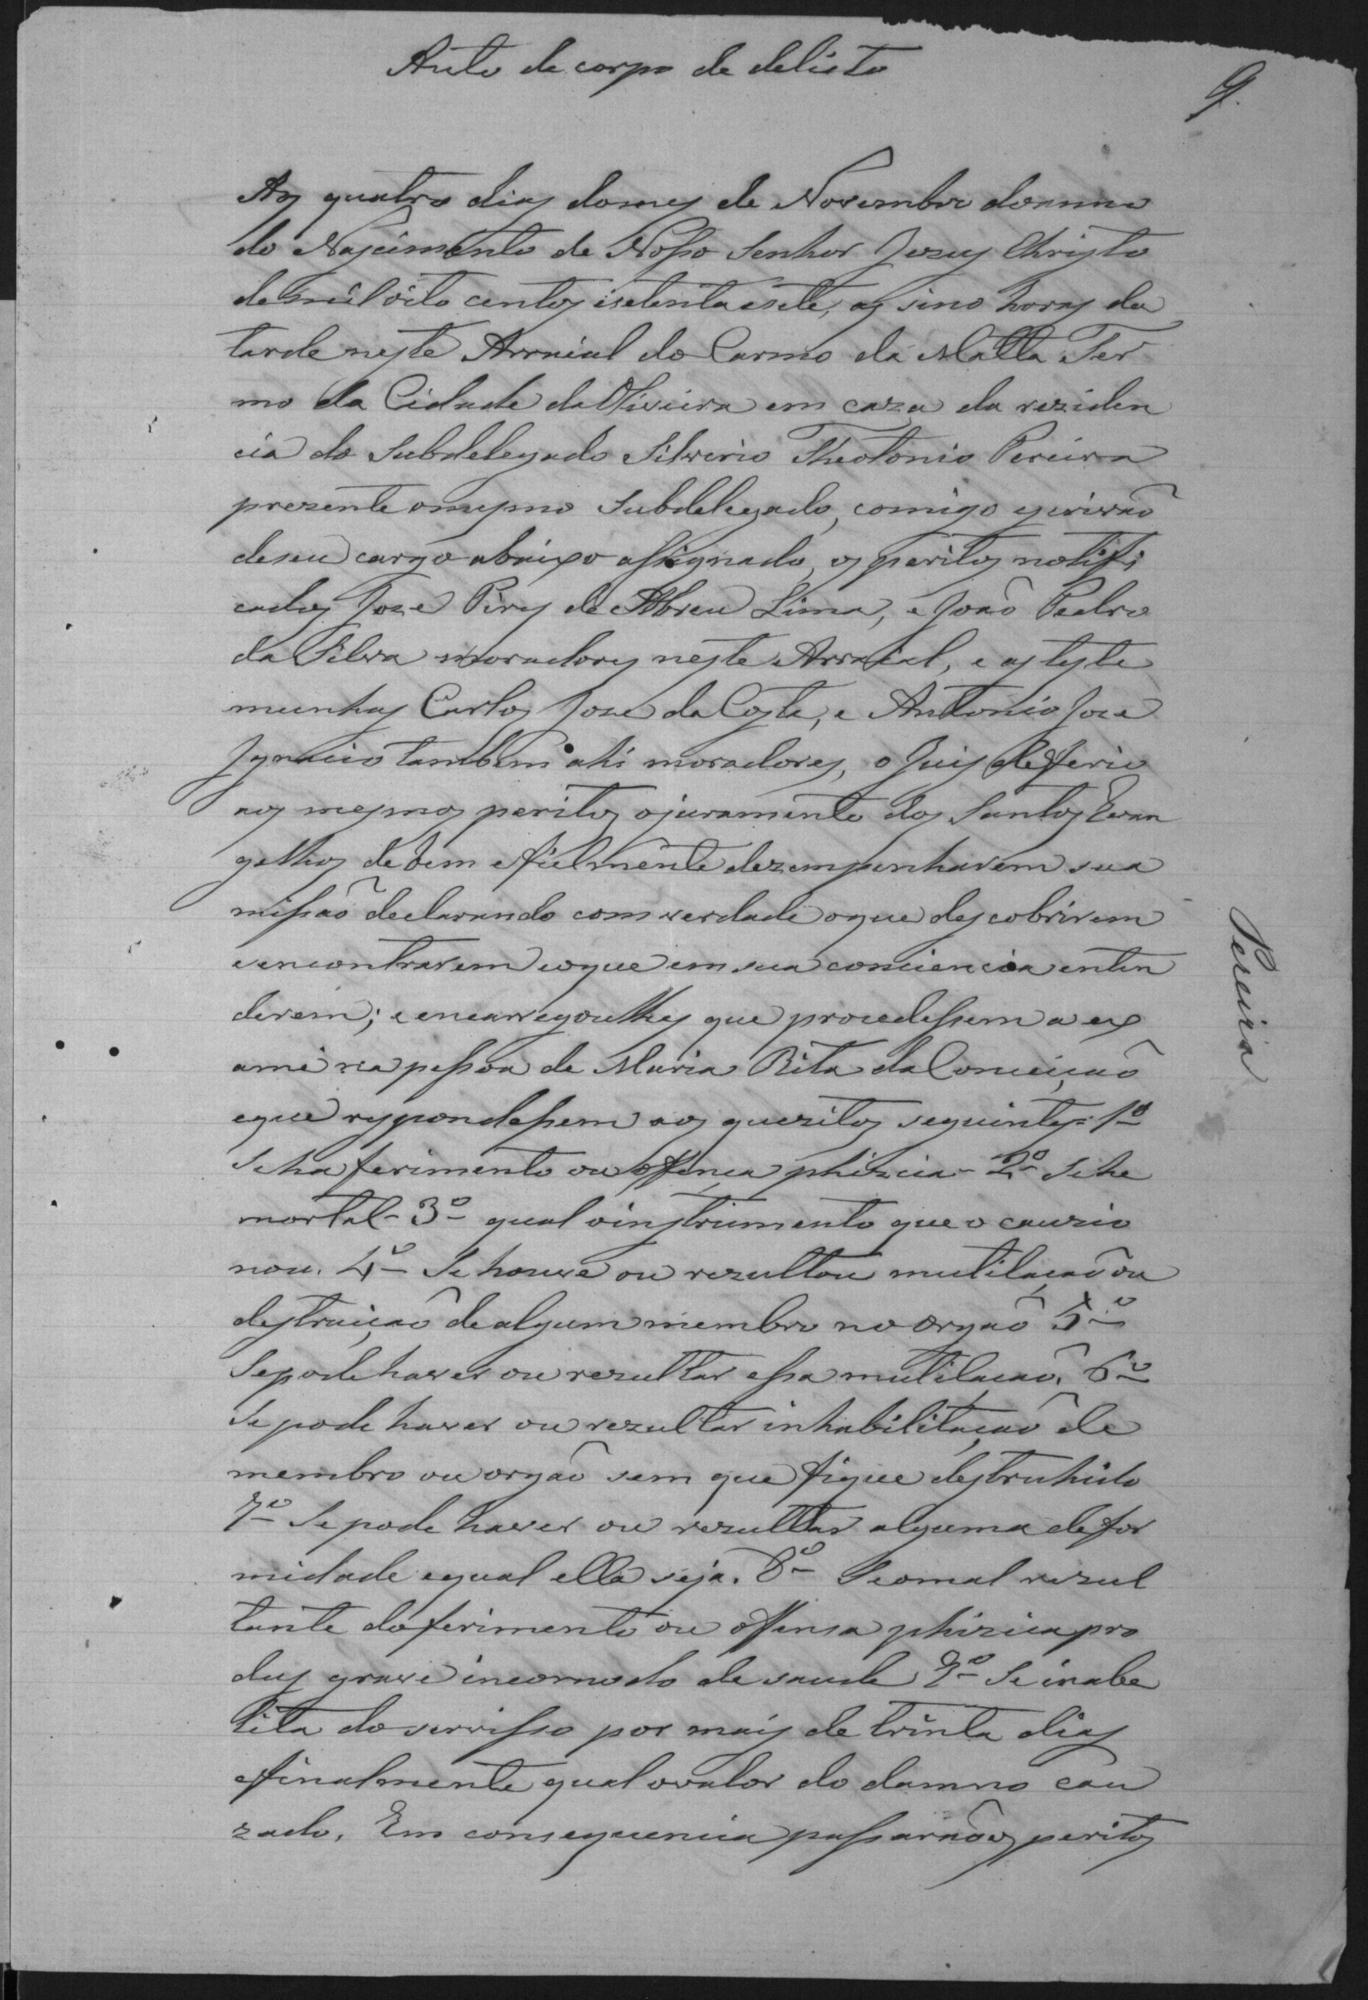 Auto de corpo de delicto
9.
As quatro dias domes de Novembro doanno
do Nascimento de Nosso Senhor Jezus Christo
demil oito centos isetenta esete, as sinco horas da
tarde neste Arraial do Carmo da Matta Ter
mo da Cidade da Oliveira em caza da reziden
cia do Subdelegado Silverio Theotonio Pereira
prezente omesmo Subdelegado, comigo escrivaõ
deseu cargo abaixo assignado, os peritos notifi
cados Joze Pires de Abreu Lima, e Joaõ Pedro
da Silva moradores neste Arraial, e as teste
munhas Carlos Joze da Costa, e Antonio Joze
Ignacio tambem ahi moradores, o Juis deferio
aos mesmos peritos ojuramento dos Santos Evan
gelhos de bem efielmente dezempenharem sua
missaõ declarando com verdade oque descobrirem
eencontrarem eoque em sua conciencia enten
derem; e encarregoulhes que procedessem a ex
ame na pessoa de Maria Rita da Conceiçaõ
eque respondessem aos quezitos seguintes: 1º
Seha ferimento ou offença phizica - 2º Sehe
mortal - 3º qual oinstrumento que o cauzio
nou. 4º Se houve ou rezultou mutilaçaõ ou
destruiçaõ de algum membro no orgaõ 5º
Sepode haver ou rezultar essa mutilaçaõ. 6º
Se pode haver ou rezultar inhabilitaçaõ de
membro ou orgaõ sem que fique destruhido
7º Se pode haver ou rezultar alguma defor
midade equal ella seja. 8º Seomal rezul
tante doferimento ou offensa phizica pro
dus grave incomodo de saude 9º Se inabe
lita do servisso por mais de trinta dias
efinalmente qual ovalor do damno cau
zado. Em consequencia passaraõ os peritos
Pereira